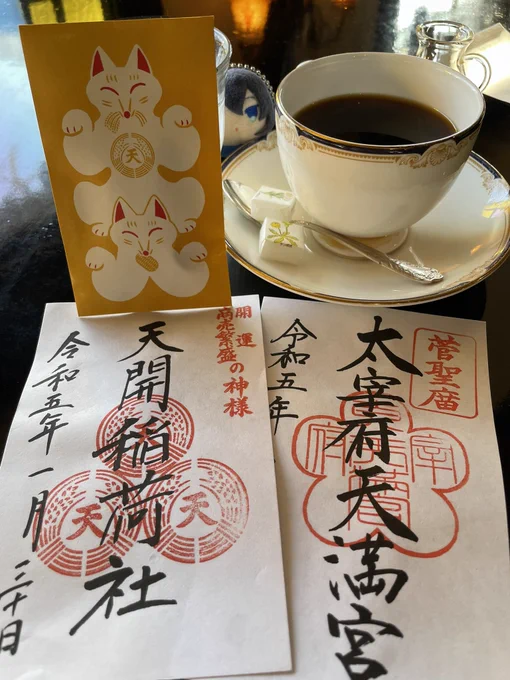 天
開運
商売繁盛の神様
天開稲荷社
天
天
令和五年一月三十日
菅聖廟
太宰府天満宮
令和五年